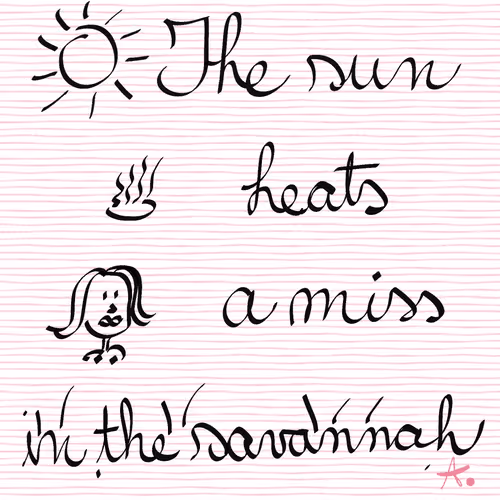 The sun
heats
a miss
in the savannah
A.